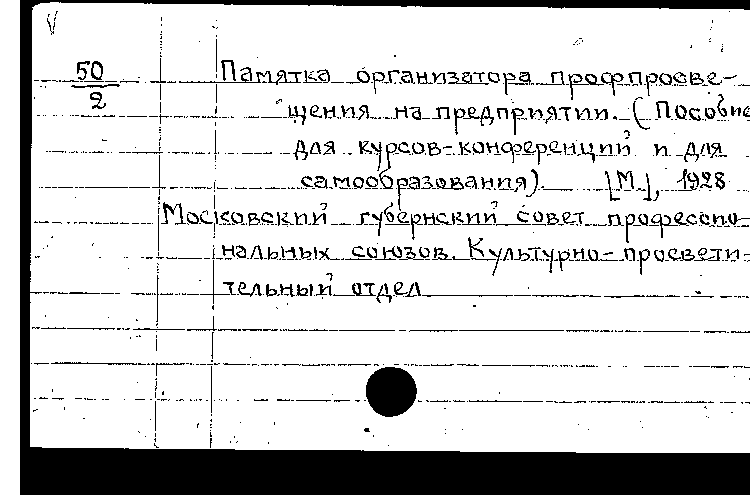 V
50
2
Памятка организатора профпросве-
щения на предприятии. (Пособие
для курсов-конференций и для
самообразования). [М.], 1928
Московский губернский совет профессио-
нальных союзов. Культурно-просвети-
тельный отдел